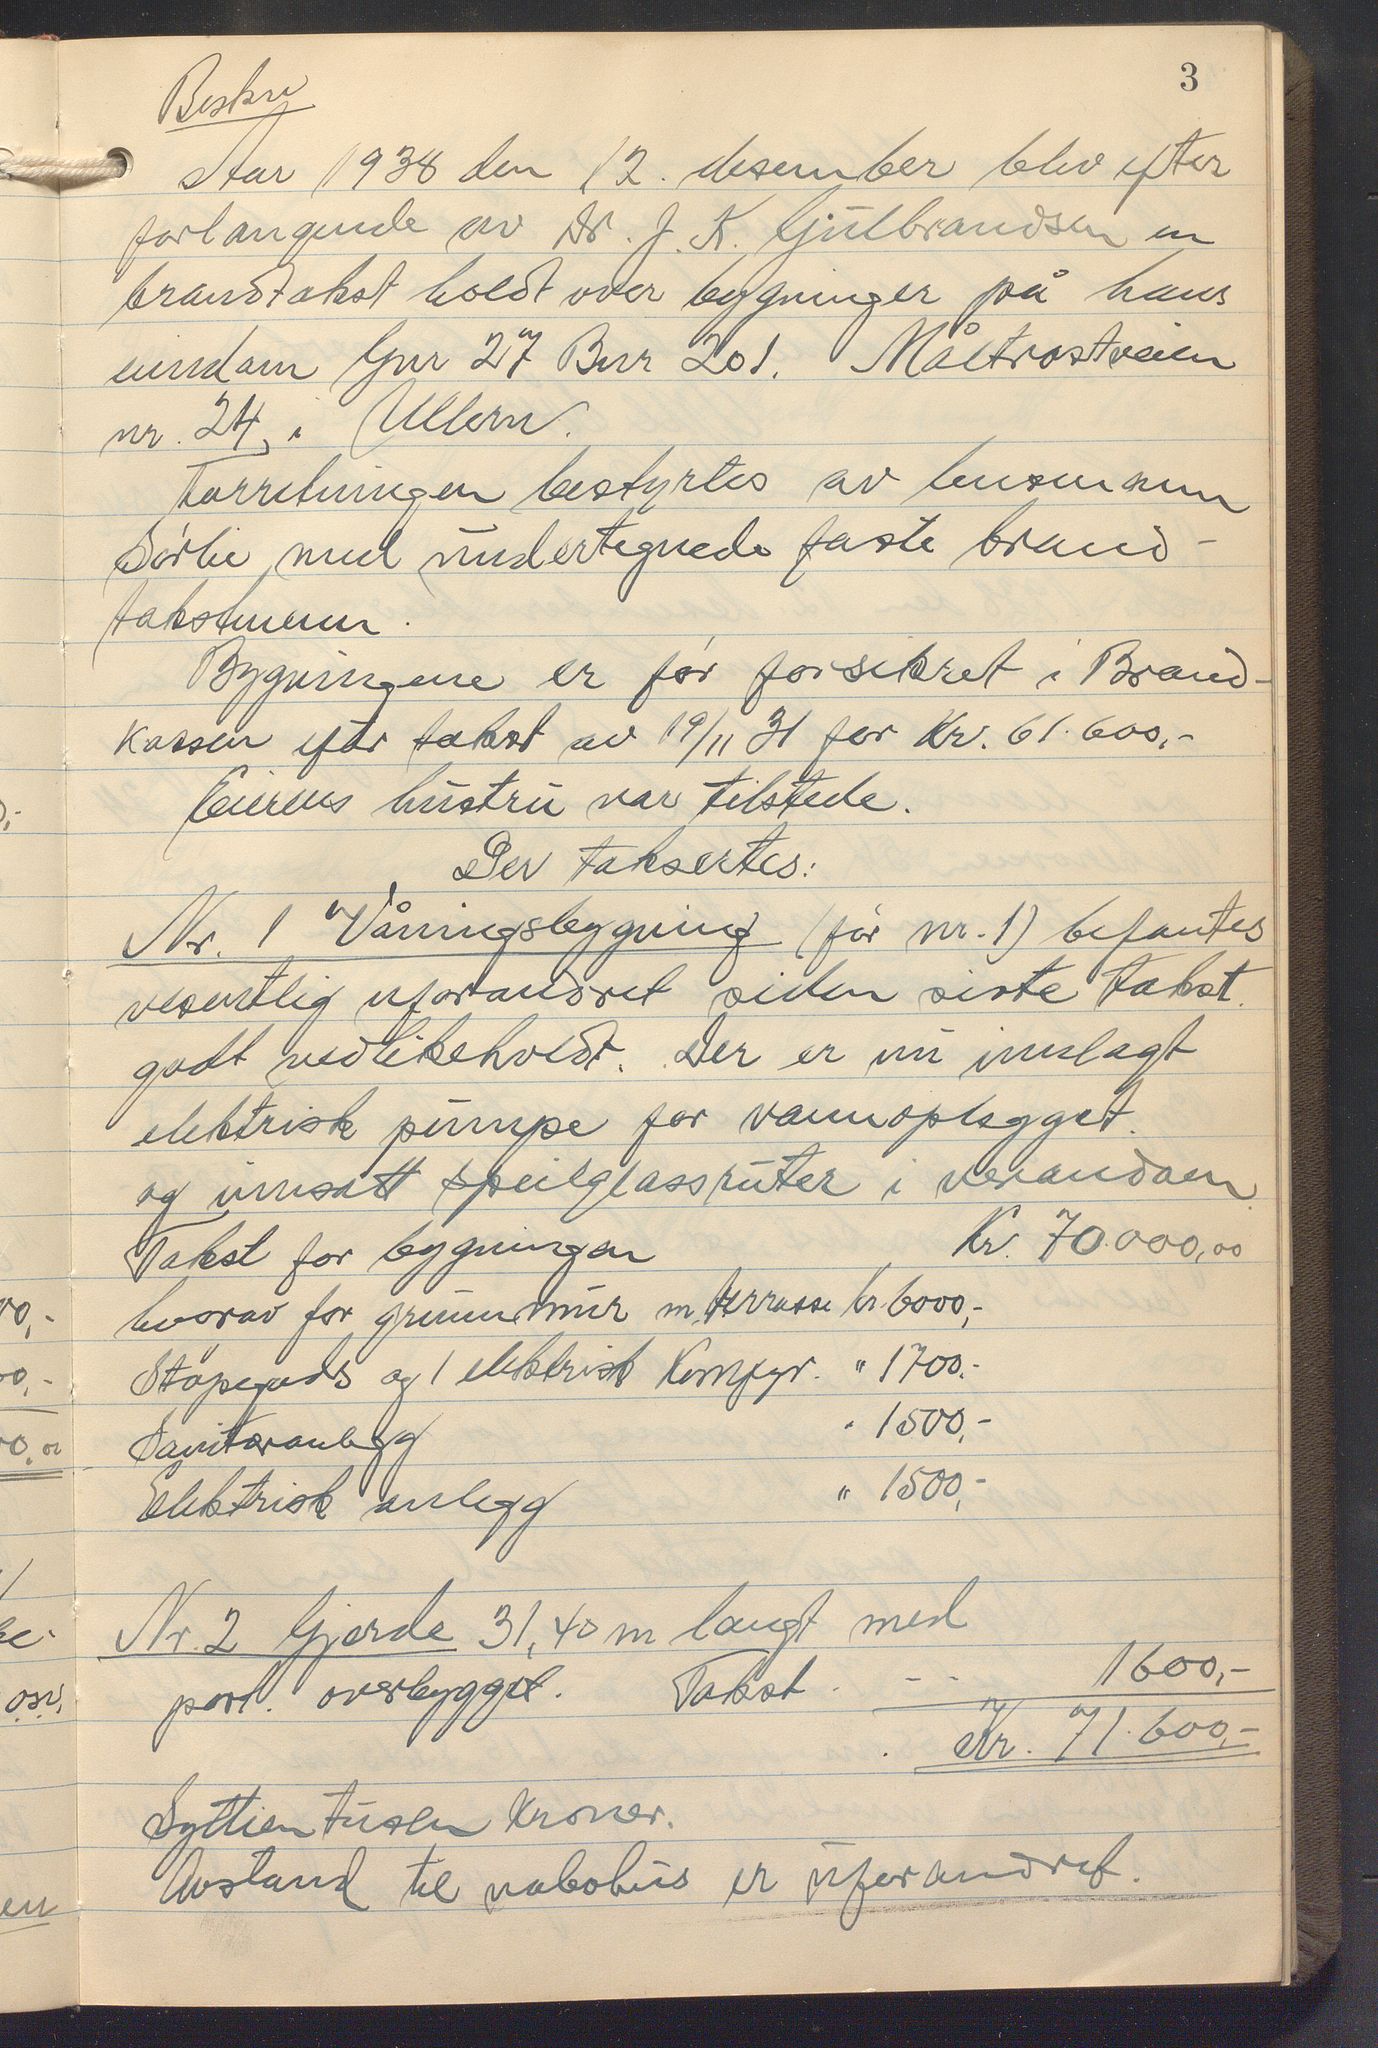 3
Beskre
Aar 1938 den 12. desember blev efter
forlangende av Dr. J. K. Gulbrandsen en
brandtakst holdt over bygninger på hans
eiendom Gnr 27 Bnr 201. Måltrostveien
nr. 24, i Ullern.
Forretningen bestyrtes av lensmann
Sørlie med undertegnede faste brand-
takstmenn.
Bygningene er før forsikret i Brand-
kassen efter takst av 19/11 31 for Kr. 61.600,-
Eierens hustru var tilstede.
Der taksertes:
Nr. 1 Våningsbygning (før nr. 1) befantes
vesentlig uforandret siden siste takst.
godt vedlikeholdt. Der er nu innlagt
elektrisk pumpe for vannoplegget.
og innsatt speilglassruter i verandaen.
Takst for bygningen Kr. 70.000,00
hvorav for grunnmur m, terrasse kr. 6000,-
Støpegods og 1 elektrisk Komfyr. " 1700.-
Sanitæranlegg " 1500,-
Elektrisk anlegg " 1500,-
Nr. 2 Gjerde 31,40 m langt med
port. overbygget. Takst. - - 1600,-
Kr. 71.600,-
Syttien tusen Kroner.
Avstand til nabohus er uforandret.